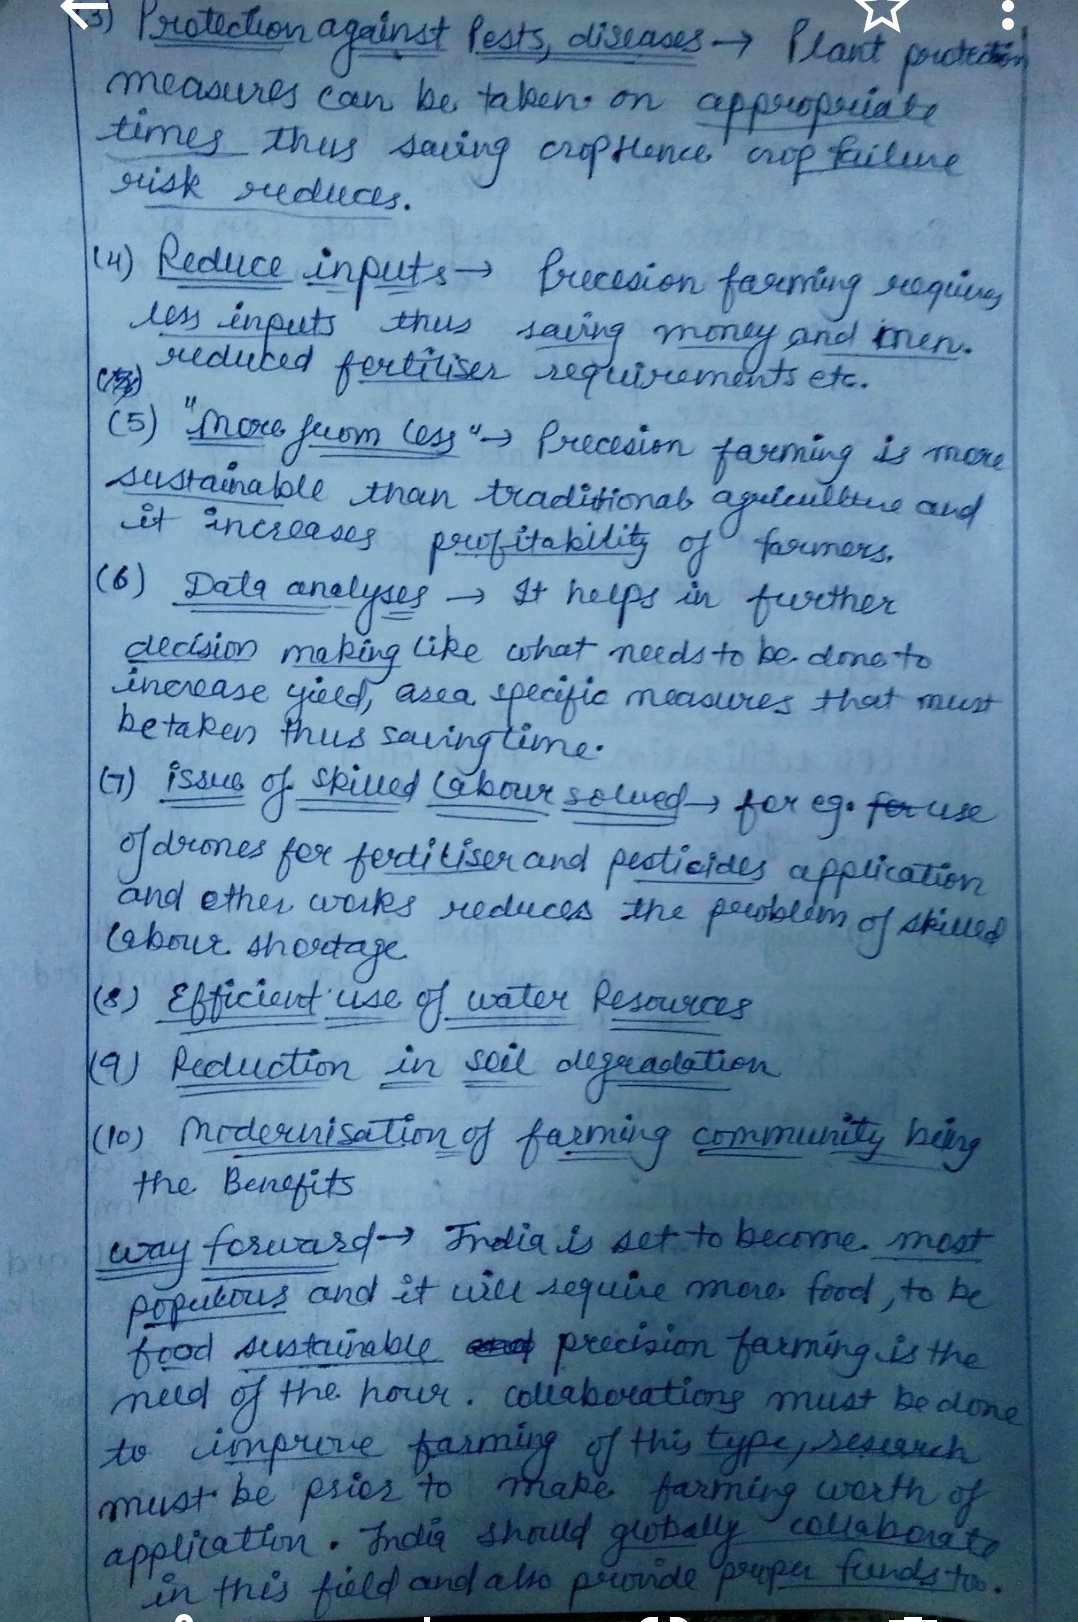 3) Protection against Pests, diseases → Plant protection
measures can be taken on appropriate
times thus saving crop Hence crop failure
risk reduces.
(4) Reduce inputs → Precesion farming requires
less inputs thus saving money and men.
reduced fertiliser requirements etc.
(5) "More from less" → Precesion farming is more
sustainable than traditional agriculture and
it increases profitability of farmers.
(6) Data analyses → It helps in further
decision making like what needs to be done to
increase yield, area specific measures that must
be taken thus saving time.
(7) issue of skilled labour solved → for eg. for use
of drones for fertiliser and pesticides application
and other works reduces the problem of skilled
labour shortage
(8) Efficient use of water Resources
(9) Reduction in soil degradation
(10) Modernisation of farming community being
the Benefits
way forward → India is set to become most
populous and it will require more food, to be
food sustainable and precision farming is the
need of the hour. collaborations must be done
to improve farming of this type, research
must be prior to make farming worth of
application. India should globally collaborate
in this field and also provide proper funds too.